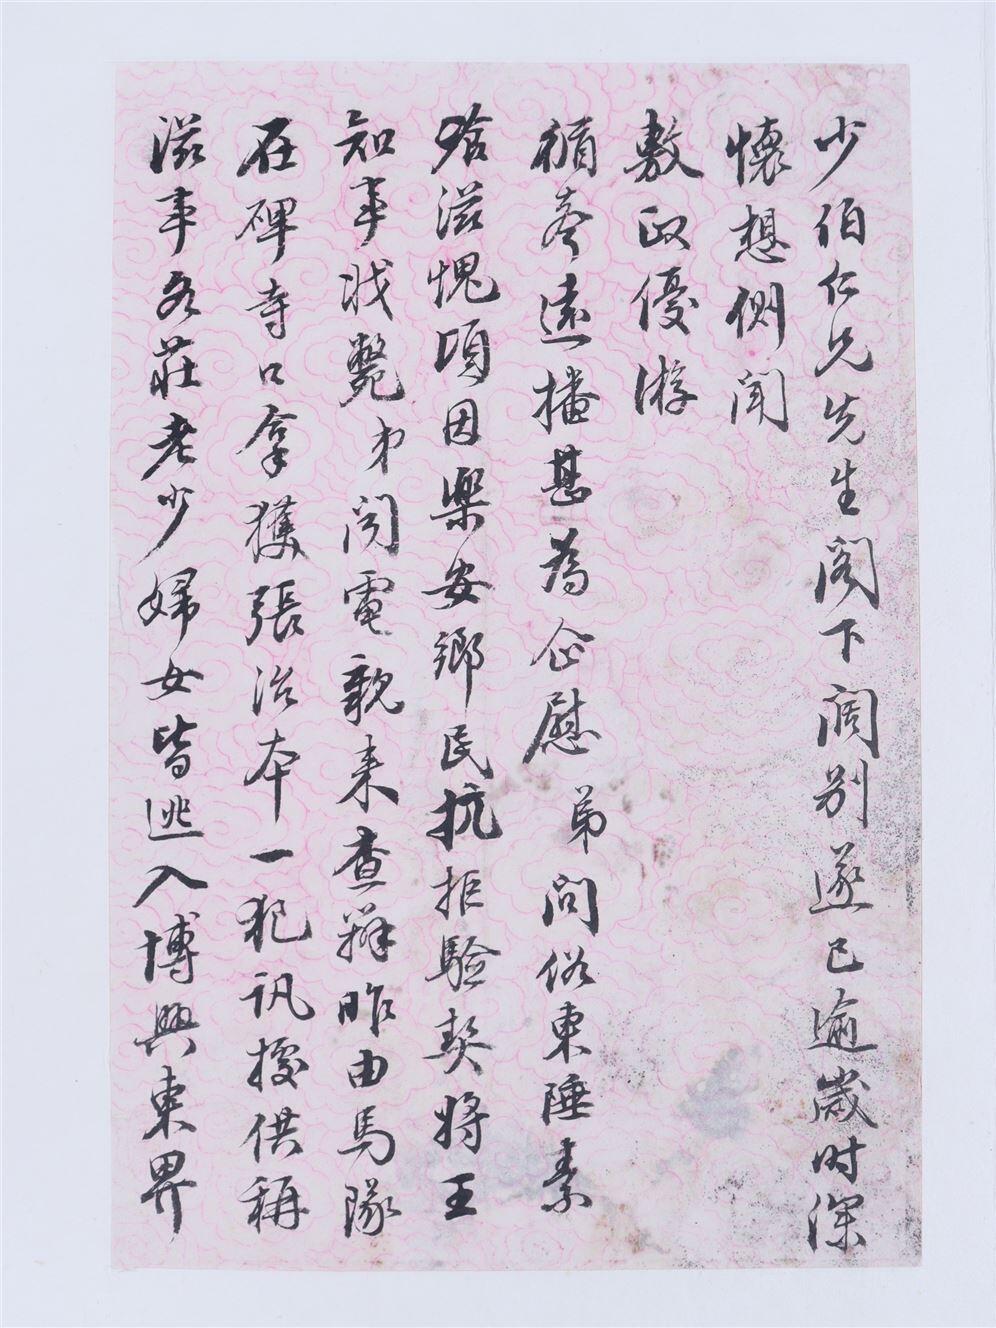 少伯仁兄先生阁下阔别遂已逾歲时深
懷想側闻
敷政優游
循聲遠播甚為企慰弟问俗東陲素
餐滋愧頃因樂安鄉民抗拒驗契将王
知事戕斃弟闻電親来查辦昨由馬隊
在碑寺口拿獲張治本一犯讯據供稱
滋事各莊老少婦女皆逃入博興東界